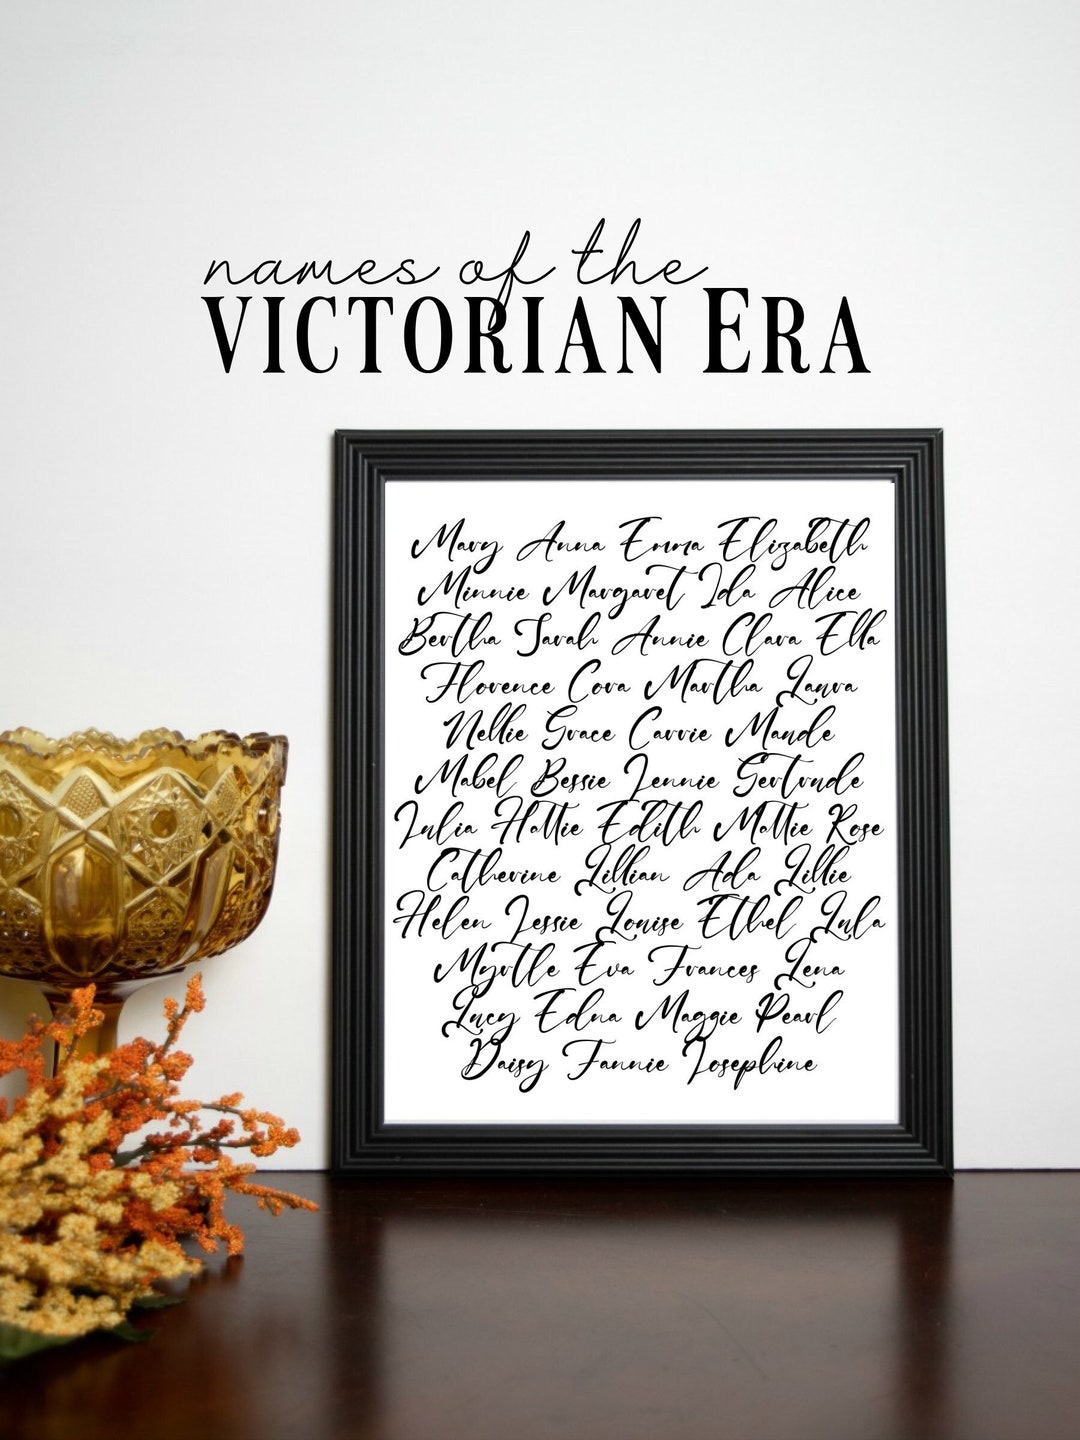 names of the
VICTORIAN ERA
Mary Anna Emma Elizabeth
Minnie Margaret Ida Alice
Bertha Sarah Annie Clara Ella
Florence Cora Martha Laura
Nellie Grace Carrie Maude
Mabel Bessie Jennie Gertrude
Julia Hattie Edith Mattie Rose
Catherine Lillian Ada Lillie
Helen Jessie Louise Ethel Lula
Myrtle Eva Frances Lena
Lucy Edna Maggie Pearl
Daisy Fannie Josephine